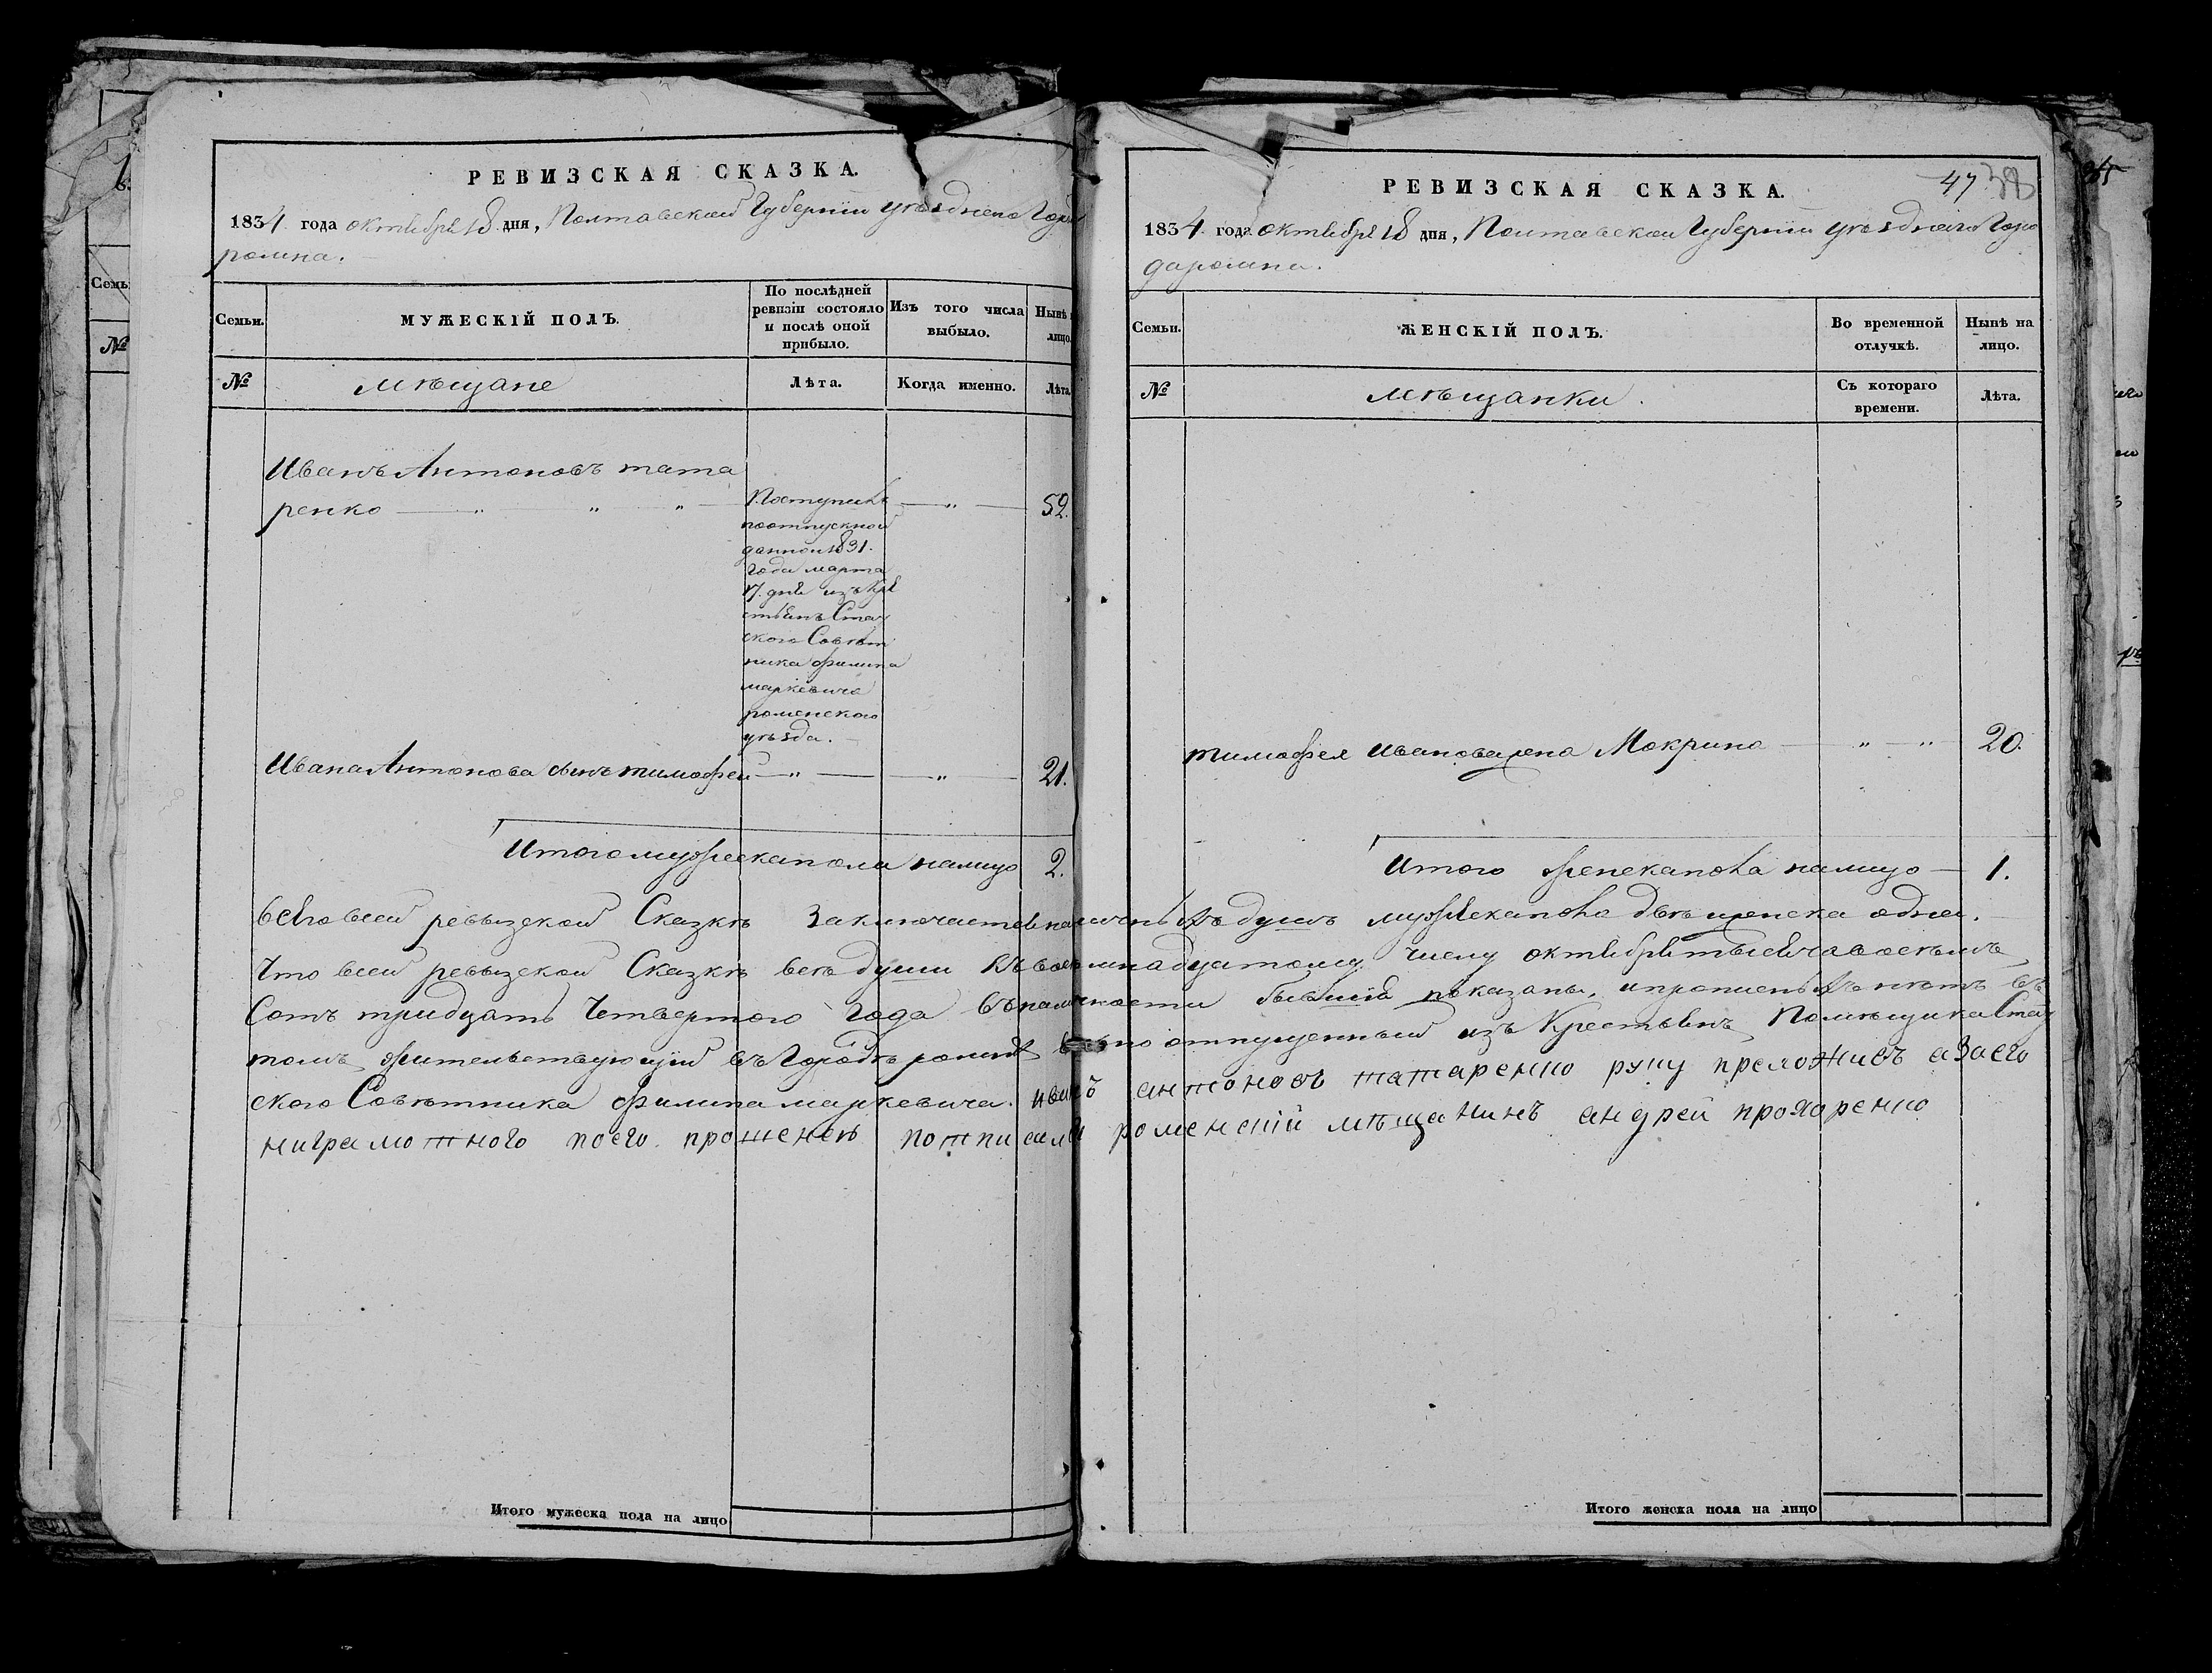 РЕВИЗСКАЯ СКАЗКА.
1834 года октября 18 дня, Полтавской Губернїи уезднаго Города
ромна.
Семьи.
МУЖЕСКІЙ ПОЛЪ.
По послѣдней
ревизіи состояло
и послѣ оной
прибыло.
Изъ того числа
выбыло.
Нынѣ
лицо.
№
мѣщане
Лѣта.
Когда именно.
Лѣта.
Иванъ Антоновъ тата
ренко — " " " — — " — 52.
Поступилъ
поотпускной
данной 1831.
Года марта
17. дня изъ кре
стьянъ Стат
ского Совѣт
ника филипа
маркевича
роменского
уѣзда.
Ивана Антонова сынъ тимофей — " — — " — 21.
Итого мужеска пола налицо 2.
РЕВИЗСКАЯ СКАЗКА.
47 38
1834 года октября 18 дня, Полтавской Губернїи уезднаго Горо
да ромна.
Семьи.
ЖЕНСКІЙ ПОЛЪ.
Во временной
отлучкѣ.
Нынѣ на
лицо.
№
мѣщанки.
Съ котораго
времени.
Лѣта.
тимофея Иванова жена Мокрина — " — " — 20.
Итого женска пола налицо — 1.
всего всей ревызской Сказкѣ Заключается наличныхъ душъ мужеска пола двѣ женска одна.
Что всей ревызской Сказкѣ всѣ души къ восемнадцатому числу октября тысяча восемъ
Сотъ тридцать Четвертого Года въ наличности бывшїя показаны, и прописныхъ нетъ въ
томъ жительствующїй въ Городѣ ромнѣ вѣчно отпущенный изъ Крестьянъ Помѣщика Стат
ского Совѣтника филипа маркевича. иванъ антоновъ татаренко руку преложилъ а За его
ниграмотного поего прошению потписалъ роменскїй мѣщанинъ андрей прохоренко
Итого мужеска пола на лицо
Итого женска пола на лицо